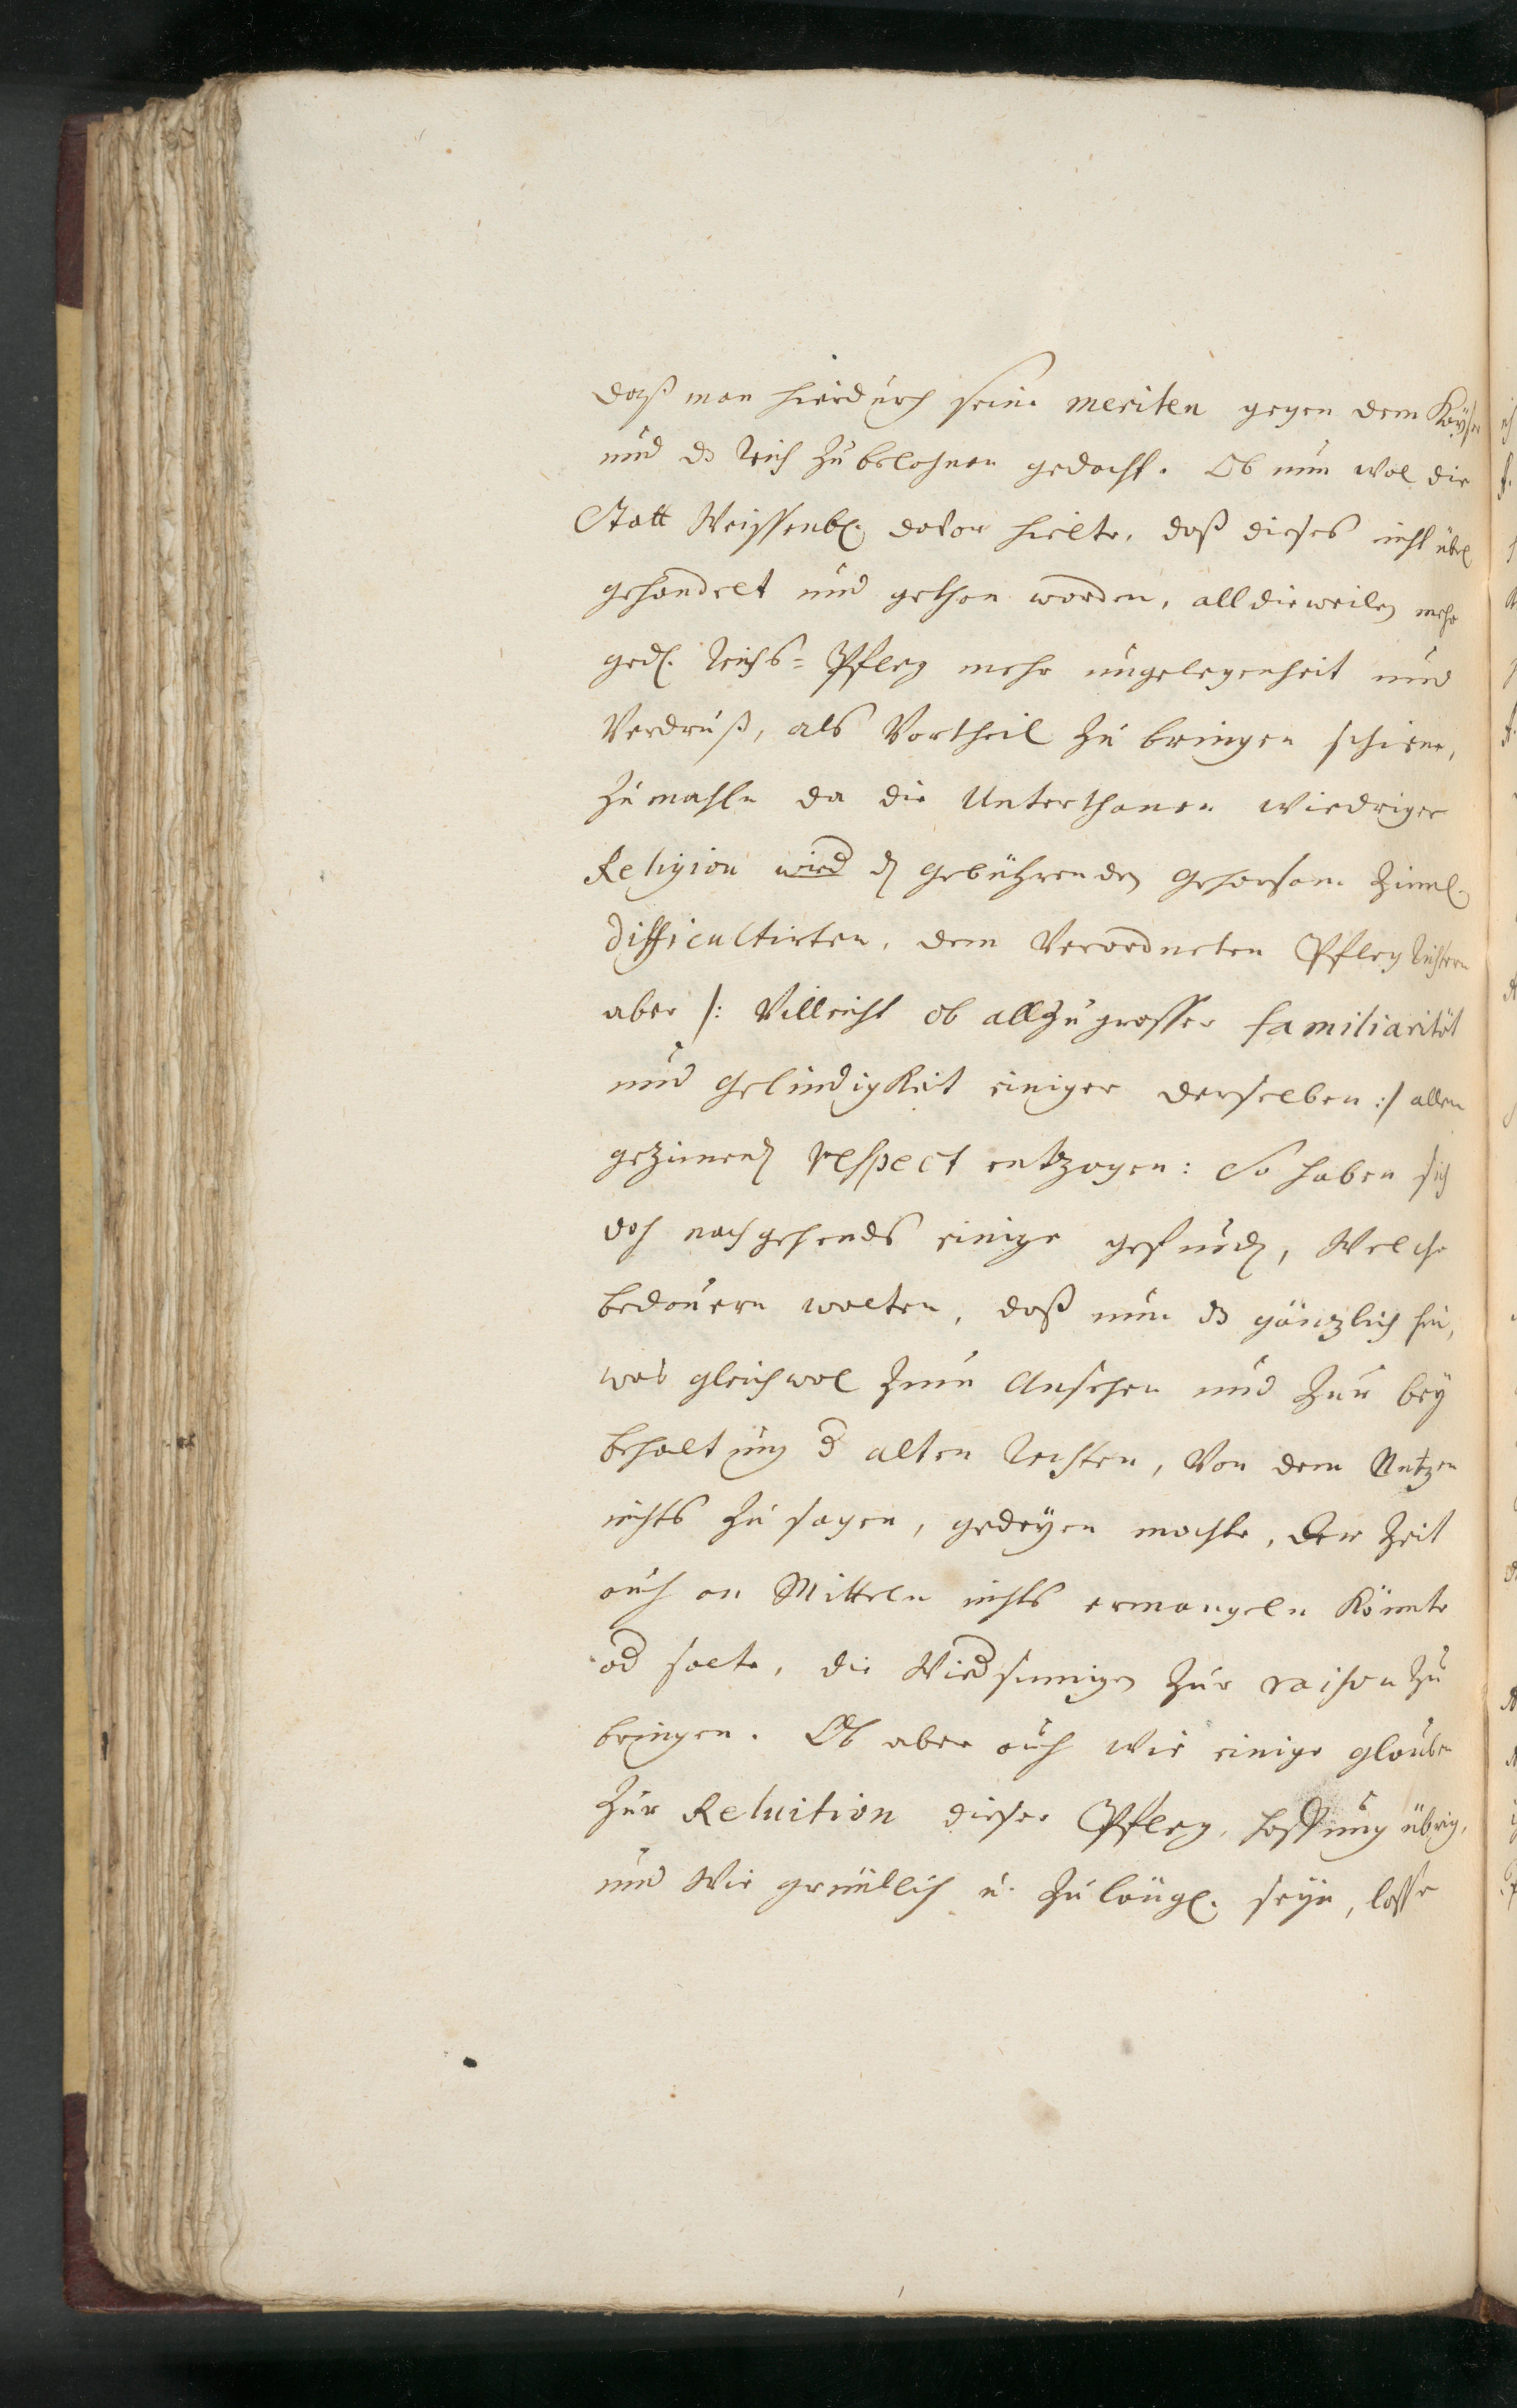 daß man hierdurch seine meriten gegen dem Käyser
und dz Reich zu belohnen gedacht. Ob nun wol die
Statt Weissenb. davor hielte, daß dieses nicht übel
gehandelt und gethan worden, alldieweilen mehr
ged. Reichs=Pfleg mehr ungelegenheit und
Verdruß, als Vortheil zu bringen schiene,
zumahln da die Unterthanen wiedriger
Religion wird den gebührenden Gehorsam ziml.
difficultirten, dem Verordneten Pfleg Richtern
aber /: Villeicht ob allzugrosser familiarität
und Gelindigkeit einiger derselben :/ allen
gezimend respect entzogen: So haben sich
doch nachgehends einige gefunden, Welche
bedauern wolten, daß nun dz gänzlich hin,
was gleichwol zum Ansehen und zur bey
behaltung d alten Rechten, Von dem Nutzen
nichts zu sagen, gedeyen mochte, Der Zeit
auch an Mitteln nichts ermangeln könnte
od solte, die Widsinnigen zur raison zu
bringen. Ob aber auch wie einige glauben
zur Reluition dieser Pfleg, Hoffnung übrig,
und Wie gründlich u. zulängl. seyn, lasse